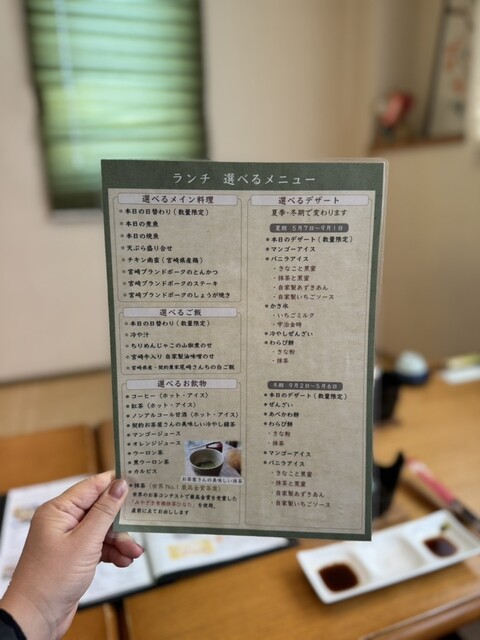 ランチ 選べるメニュー
選べるメイン料理
本日の日替わり(数量限定)
本日の煮魚
本日の焼魚
天ぷら盛り合せ
チキン南蛮(宮崎県産鶏)
宮崎ブランドポークのとんかつ
宮崎ブランドポークのステーキ
宮崎ブランドポークのしょうが焼き
選べるご飯
本日の日替わり(数量限定)
冷や汁
ちりめんじゃこの山椒煮のせ
宮崎牛入り 自家製油味噌のせ
宮崎県産・契約農家尾崎さんちの白ご飯
選べるお飲物
コーヒー(ホット・アイス)
紅茶(ホット・アイス)
ノンアルコール甘酒(ホット・アイス)
契約お茶屋さんの美味しい冷やし緑茶
マンゴージュース
オレンジジュース
ウーロン茶
黒ウーロン茶
カルピス
お茶屋さんの美味しい抹茶
抹茶(世界No.1 最高金賞受賞)
世界のお茶コンテストで最高金賞を受賞した
を使用。
選べるデザート
夏季・冬期で変わります
夏期 5月7日~9月1日
本日のデザート(数量限定)
マンゴーアイス
バニラアイス
・きなこと黒蜜
・抹茶と黒蜜
・自家製あずきあん
・自家製いちごソース
かき氷
・いちごミルク
・宇治金時
冷やしぜんざい
わらび餅
・きな粉
・抹茶
冬期 9月2日~5月6日
本日のデザート(数量限定)
ぜんざい
あべかわ餅
わらび餅
・きな粉
・抹茶
マンゴーアイス
バニラアイス
・きなこと黒蜜
・抹茶と黒蜜
・自家製あずきあん
・自家製いちごソース